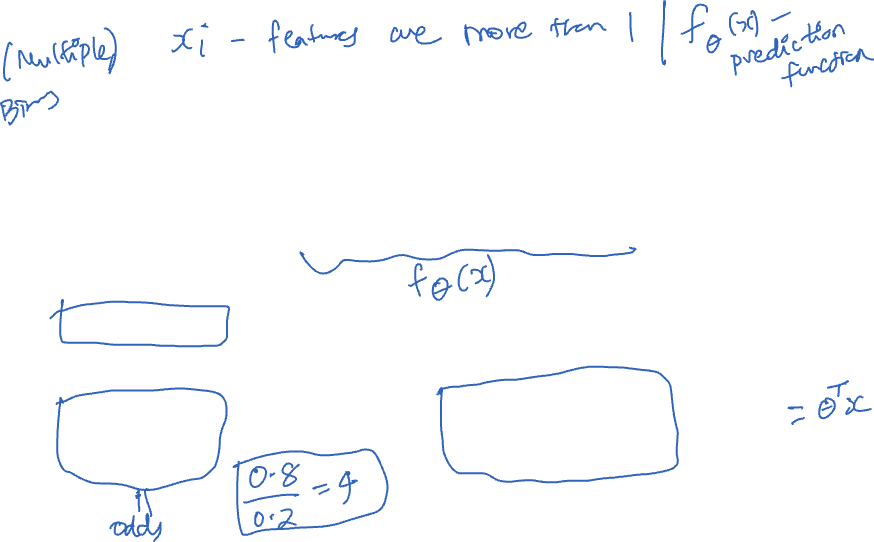 (Multiple) xi - features are more than 1 | fθ(x) - prediction function
fθ(x)
= θᵀx
0.8/0.2 = 4
odds